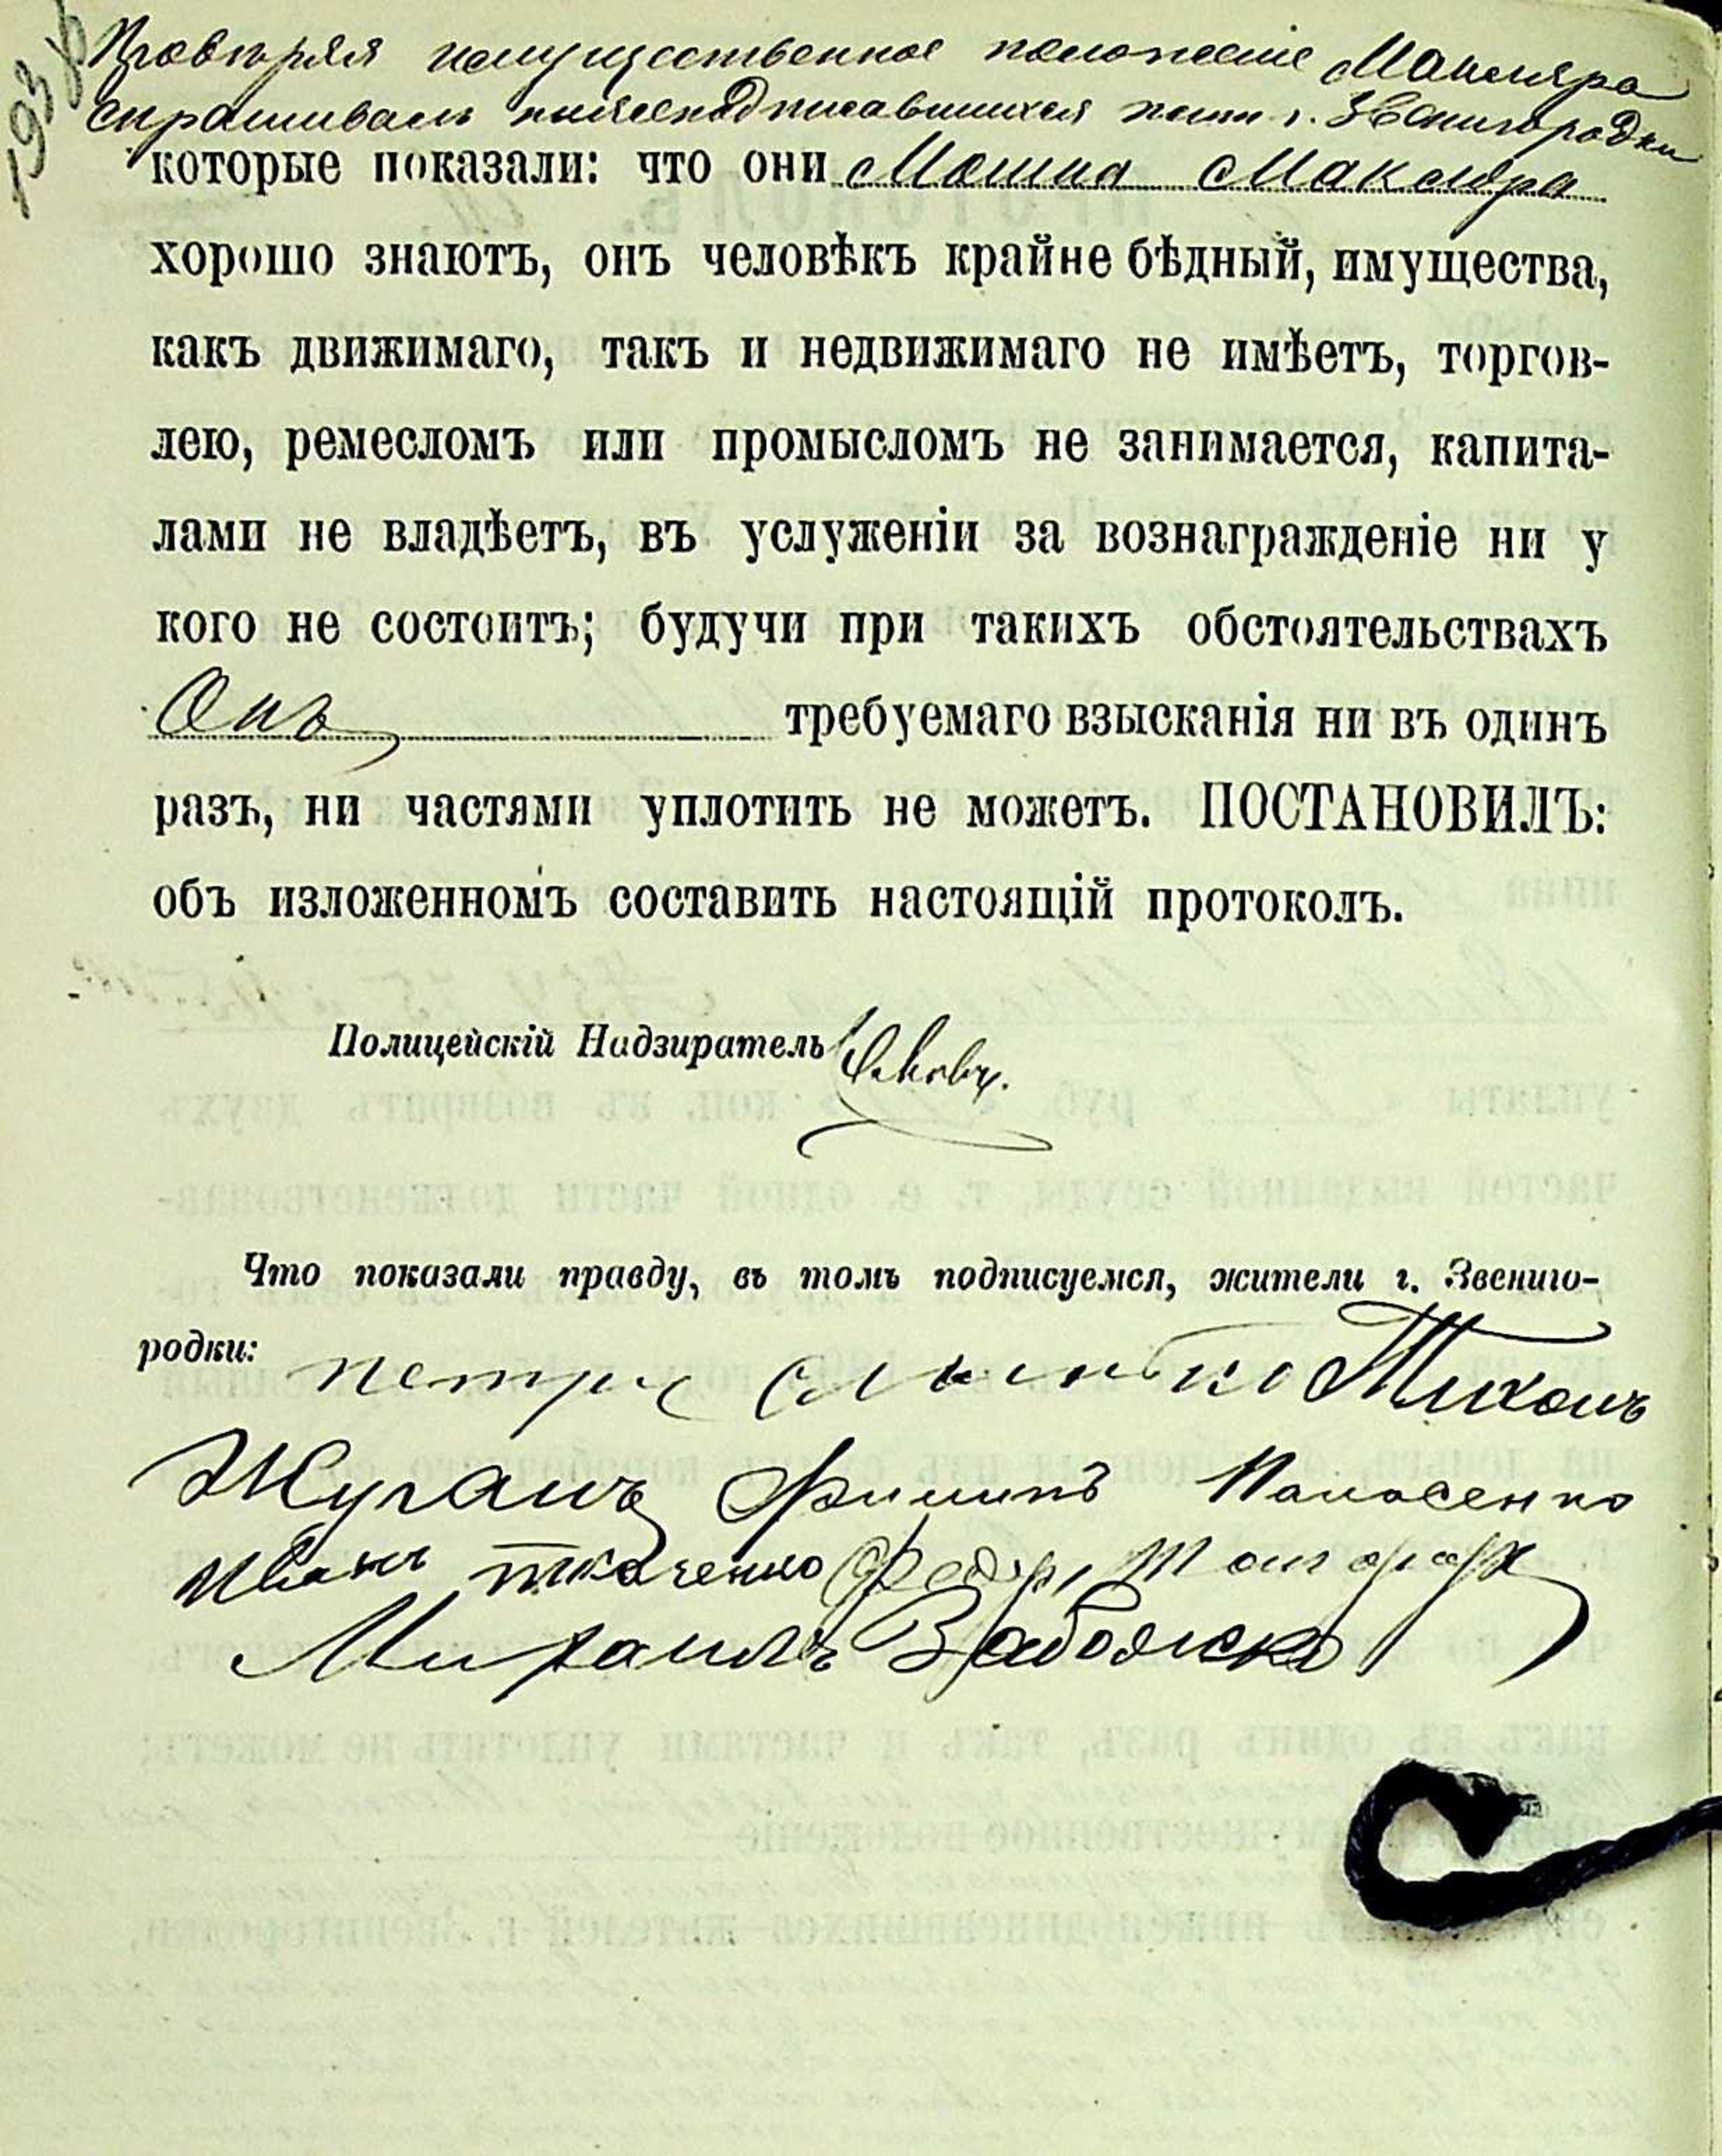 193
Провѣряя имущественное положеніе Макляра
спрашивалъ нижеподписавшихся жит. г. Звенигородки
которые показали: что они Мошка Макляра
хорошо знаютъ, онъ человѣкъ крайне бѣдный, имущества,
какъ движимаго, такъ и недвижимаго не имѣетъ, торгов-
лею, ремесломъ или промысломъ не занимается, капита-
лами не владѣетъ, въ услуженіи за вознагражденіе ни у
кого не состоитъ; будучи при такихъ обстоятельствахъ
Онъ требуемаго взысканія ни въ одинъ
разъ, ни частями уплотить не можетъ. ПОСТАНОВИЛЪ:
объ изложенномъ составить настоящій протоколъ.
Полицейскій Надзиратель
Что показали правду, въ томъ подписуемся, жители г. Звениго-
родки: Петръ Тихонъ
Жуганъ Филипъ Панасенко
Иванъ ткаченко Федр
Михаилъ